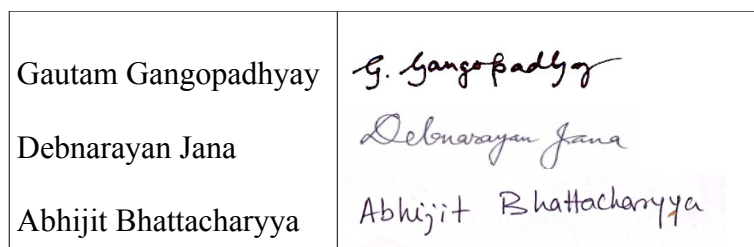 Gautam Gangopadhyay G. Gangopadhyay
Debnarayan Jana Debnarayan Jana
Abhijit Bhattacharyya Abhijit Bhattacharyya